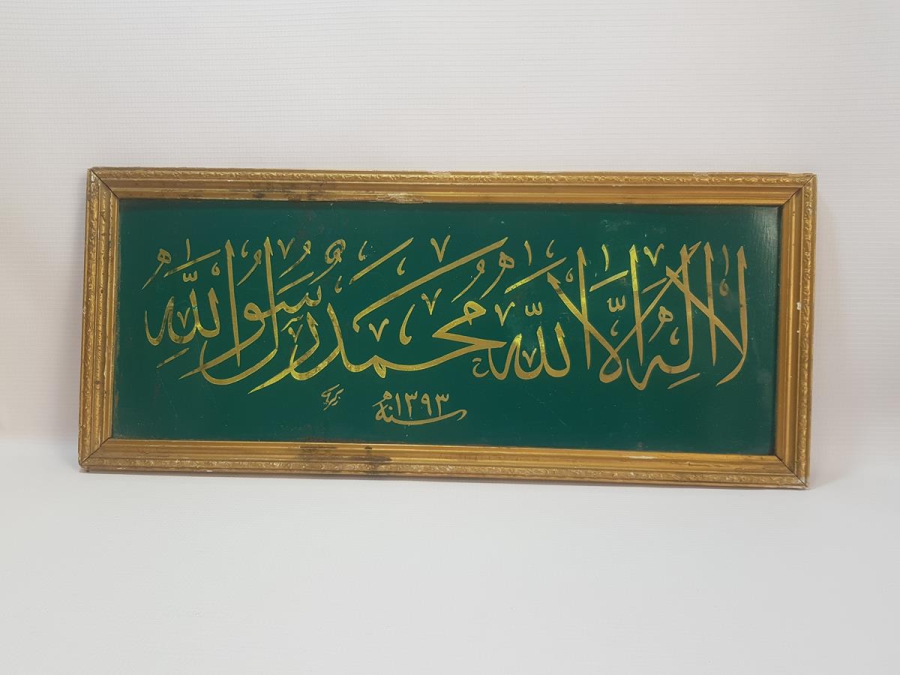 لا اله الا الله محمد رسول الله
سنة ١٣٩٣